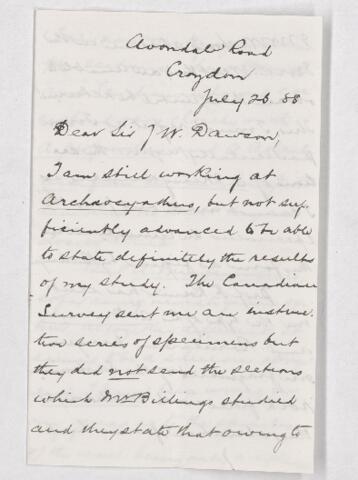 Avondale Road
Croydon
July 26. 88
Dear Sir J W. Dawson,
I am still working at
Archæocyathus, but not suf-
ficiently advanced to be able
to state definitely the results
of my study. The Canadian
Survey sent me an instruc-
tive series of specimens but
they did not send the sections
which Mr Billings studied
and they state that owing to